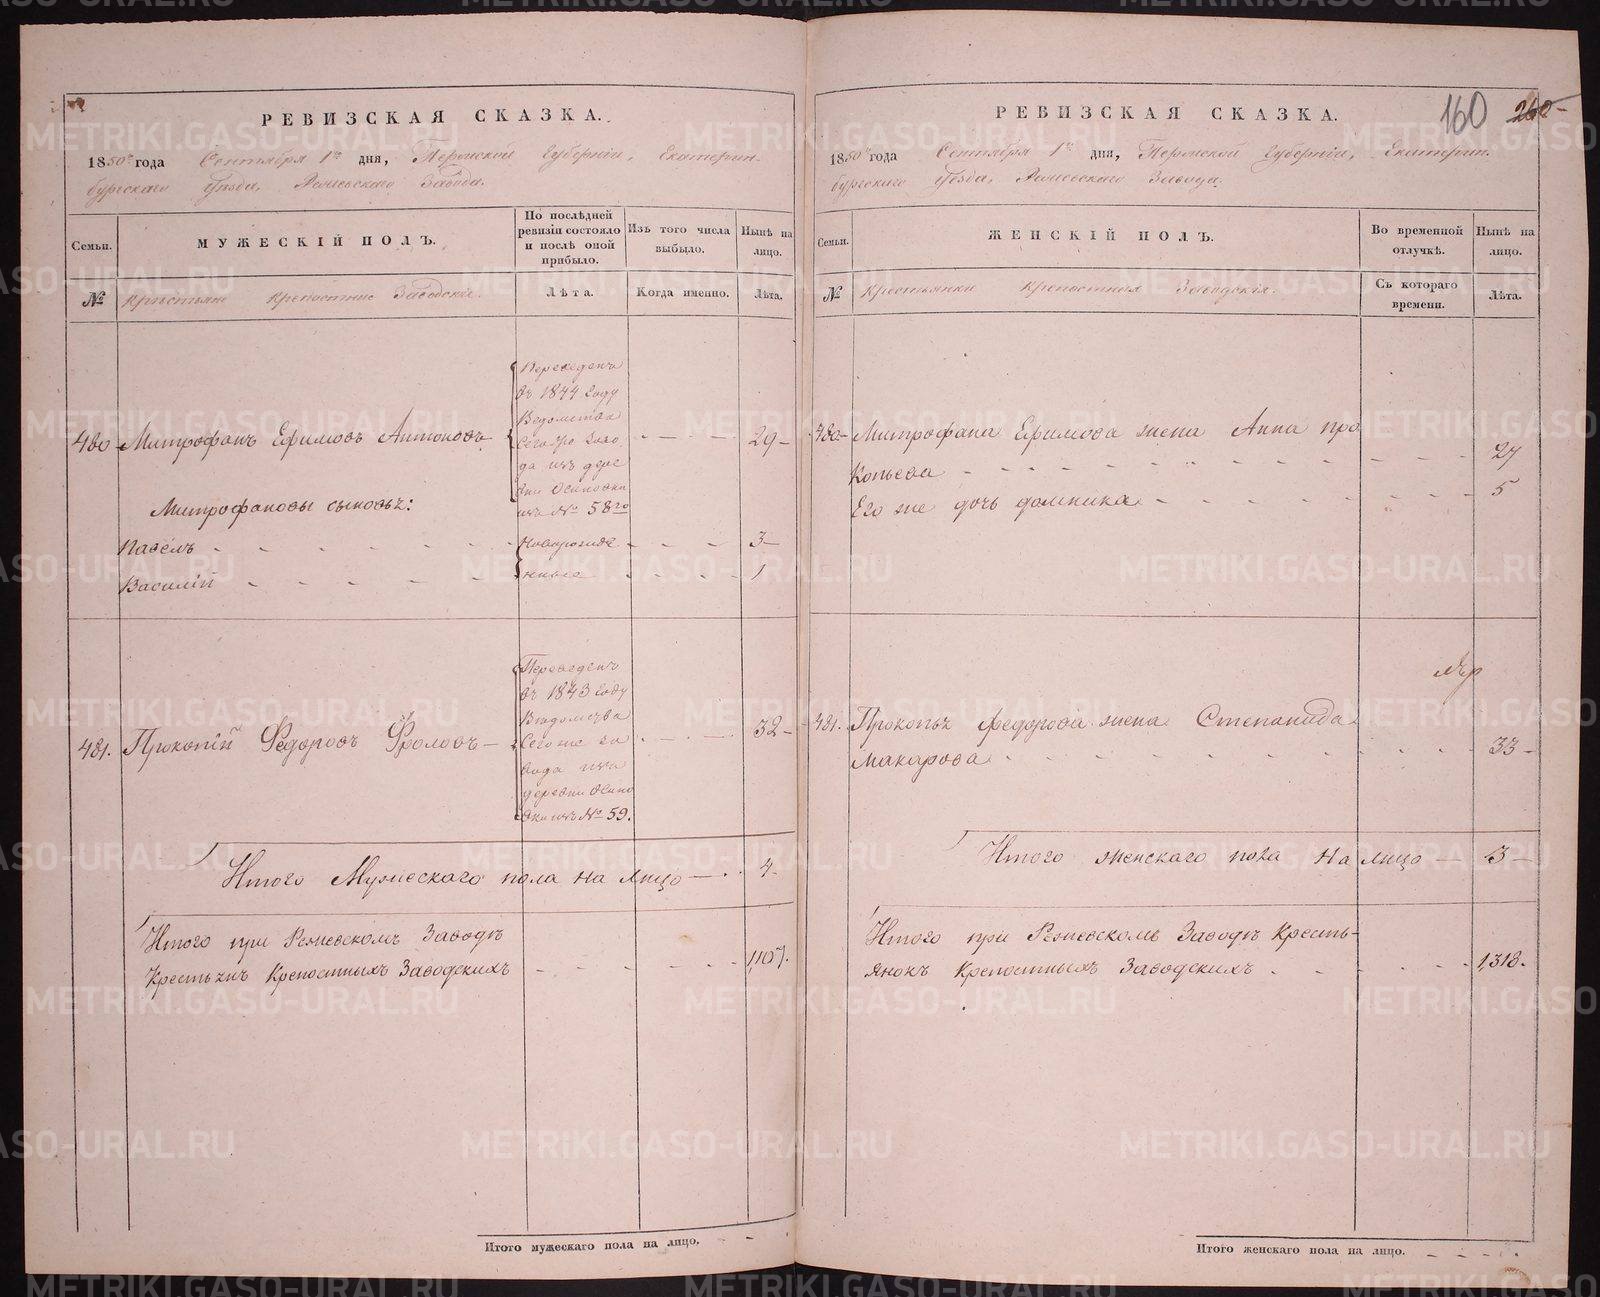 РЕВИЗСКАЯ СКАЗКА.
1850го года Сентября 1го дня, Пермской Губернiи, Екатерин-
бургскаго Уѣзда, Режевскаго Завода.
Семьи.
МУЖЕСКIЙ ПОЛЪ.
По послѣдней
ревизiи состояло
и послѣ оной
прибыло.
Изъ того числа
выбыло.
Нынѣ на
лицо.
№
Крестьяне крепостные Заводскiе.
Лѣта.
Когда именно.
Лѣта.
480 Митрофанъ Ефимовъ Антоновъ
Переведенъ
въ 1844 году
Ведомства
сего же заво
да изъ дере
вни Осиновки
изъ № 58го
29
Митрофановы сыновья:
Павелъ
Новорожде
3
Василiй
нные
1
481. Прокопiй Федоровъ Фроловъ
Переведенъ
въ 1843 году
Ведомства
Сего же за
вода изъ
деревни Осино
вки изъ № 59.
32
Итого Мужескаго пола на лицо
4
Итого при Режевскомъ Заводѣ
Крестьянъ Крепостныхъ Заводскихъ
1,107.
Итого мужескаго пола на лицо.
РЕВИЗСКАЯ СКАЗКА.
160 260
1850го года Сентября 1го дня, Пермской Губернiи, Екатерин-
бургскаго Уѣзда, Режевскаго Завода.
Семьи.
ЖЕНСКIЙ ПОЛЪ.
Во временной
отлучкѣ.
Нынѣ на
лицо.
№
Крестьянки крепостныя Заводскiя.
Съ котораго
времени.
Лѣта.
480 Митрофана Ефимова жена Анна Про
копьева
27
Его же дочь Домника
5
481. Прокопья Федорова жена Степанида
Макарова
33
Итого женскаго пола на лицо 3
Итого при Режевскомъ Заводѣ Кресть-
янокъ Крепостныхъ Заводскихъ
1,318.
Итого женскаго пола на лицо.
METRIKI.GASO-URAL.RU